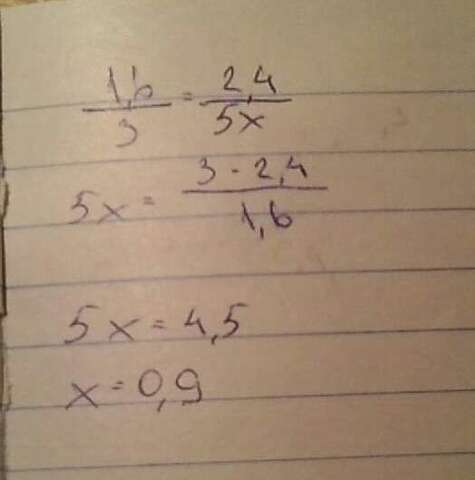 1,6/3 = 2,4/5x
5x = 3 · 2,4/1,6
5x = 4,5
x = 0,9